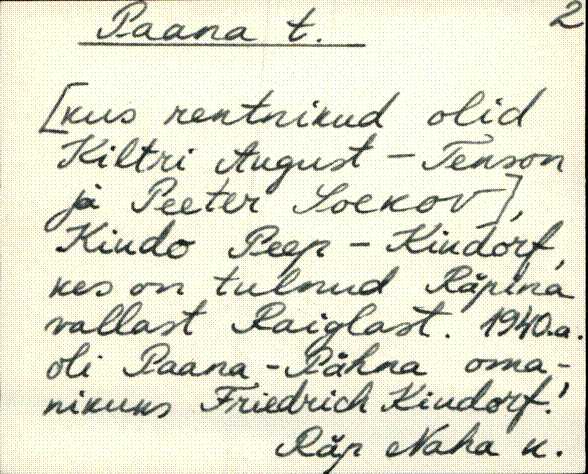 Paana t. 2
[kus rentnikud olid
Kiltri August - Tenson
ja Peeter Soekov],
Kindo Peep - Kindorf,
kes on tulnud Räpina
vallast Raiglast. 1940.a.
oli Paana-Pähna oma-
nikuks Friedrich Kindorf!
Räp Naha k.